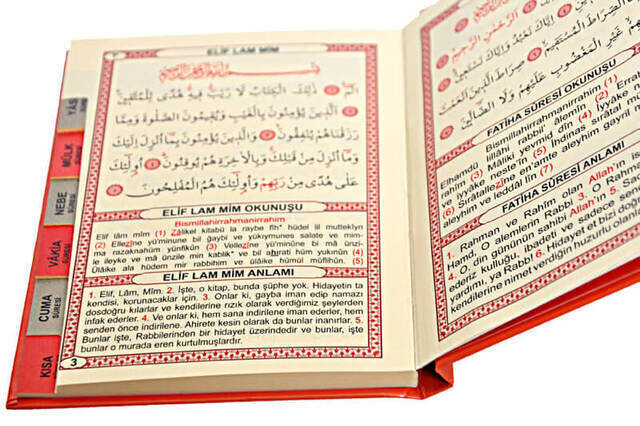 ٣ ELİF LAM MİM
بِسْمِ اللّٰهِ الرَّحْمٰنِ الرَّحِيمِ
الٓمٓ ذٰلِكَ الْكِتَابُ لَا رَيْبَ فِيهِ هُدًى لِلْمُتَّقِينَ
اَلَّذِينَ يُؤْمِنُونَ بِالْغَيْبِ وَيُقِيمُونَ الصَّلٰوةَ وَمِمَّا
رَزَقْنَاهُمْ يُنْفِقُونَ وَالَّذِينَ يُؤْمِنُونَ بِمَا اُنْزِلَ اِلَيْكَ
وَمَا اُنْزِلَ مِنْ قَبْلِكَ وَبِالْاٰخِرَةِ هُمْ يُوقِنُونَ اُولٰئِكَ
عَلٰى هُدًى مِنْ رَبِّهِمْ وَاُولٰئِكَ هُمُ الْمُفْلِحُونَ
ELİF LAM MİM OKUNUŞU
Bismillahirrahmanirrahim
Elif lâm mîm (1) Zâlikel kitâbü la raybe fîh* hüdel lil muttekîyn
(2) Ellezîne yü'minune bil ğaybi ve yükıymunes salate ve mim-
ma razaknahüm yünfikûn (3) Vellezîne yü'minûne bi mâ ünzi-
le ileyke ve mâ ünzile min kablik* ve bil ahırati hüm yukınûn (4)
Ülâike ala hüdem mir rabbihim ve ülâike hümül müflihûn. (5)
ELİF LAM MİM ANLAMI
1. Elif, Lâm, Mîm. 2. İşte, o kitap, bunda şüphe yok. Hidayetin ta
kendisi, korunacaklar için. 3. Onlar ki, gayba iman edip namazı
dosdoğru kılarlar ve kendilerine rızık olarak verdiğimiz şeylerden
infak ederler. 4. Ve onlar ki, hem sana indirilene iman ederler, hem
senden önce indirilene. Ahirete kesin olarak da bunlar inanırlar. 5.
Bunlar işte, Rabbilerinden bir hidayet üzerindedir ve bunlar, işte
bunlar o murada eren kurtulmuşlardır.
3
YÂSİ
SÛRE
MÜLK
SÛRESİ
NEBE
SÛRESİ
VÂKIA
SÛRESİ
CUMA
SÛRESİ
KISA
الرَّحْمٰنِ الرَّحِيمِ
اِيَّاكَ نَعْبُدُ وَاِيَّاكَ نَسْتَعِينُ
الصِّرَاطَ الْمُسْتَقِيمَ صِرَاطَ الَّذِينَ اَنْعَمْتَ
غَيْرِ الْمَغْضُوبِ عَلَيْهِمْ وَلَا الضَّالِّينَ
FATİHA SÛRESİ OKUNUŞU
Bismillahirrahmanirrahim (1)
Elhamdü lillâhi rabbil' âlemîn (2) Errah
rahîm (3) Mâliki yevmid dîn (4) İyyâke na
ve iyyâke neste'în (5) İhdinas sırâtal
(6) Sırâtallezîne en'amte aleyhim gayril
aleyhim ve leddâl lîn (7)
FATİHA SÛRESİ ANLAMI
1. Rahman ve Rahîm olan Allah'ın
Hamd, O âlemlerin Rabbi 3. O Rahm
4. O, din gününün sahibi Allah'ın 5. Sade
ederiz kulluğu, ibadeti ve sadece se
yardımı, ya Rabb! 6. Hidayet et bizi do
kendilerine nimet verdiğin huzurlu